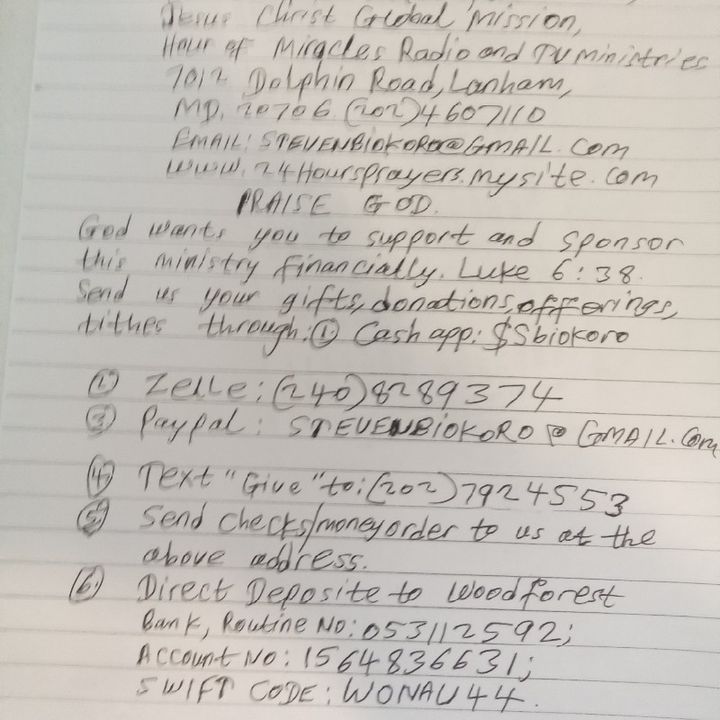 Jesus Christ Global Mission,
Hour of Miracles Radio and TV ministries
7012 Dolphin Road, Lanham,
MD. 20706. (202)4607110
EMAIL: STEVENBIOKORO@GMAIL.com
www.24Hoursprayers.mysite.com
PRAISE GOD.
God wants you to support and sponsor
this ministry financially. Luke 6:38.
Send us your gifts, donations, offerings,
tithes through: ① Cash app: $Sbiokoro
① Zelle: (240)8289374
③ Paypal: STEVENBIOKORO@GMAIL.com
④ Text "Give" to: (202)7924553
⑤ Send checks/money order to us at the
above address.
⑥ Direct Deposite to Woodforest
Bank, Routine No: 053112592;
Account No: 1564836631;
SWIFT CODE: WONAU44.